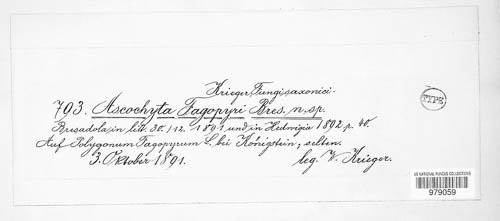 Krieger, Fungi saxonici.
793. Ascochyta Fagopyri Bres. n. sp.
Bresadola in litt. 30./12. 1891 und in Hedwigia 1892 p. 40.
Auf Polygonum Fagopyrum L. bei Königstein, selten.
3. Oktober 1891. leg. W. Krieger.
TYPE
US NATIONAL FUNGUS COLLECTIONS
979059